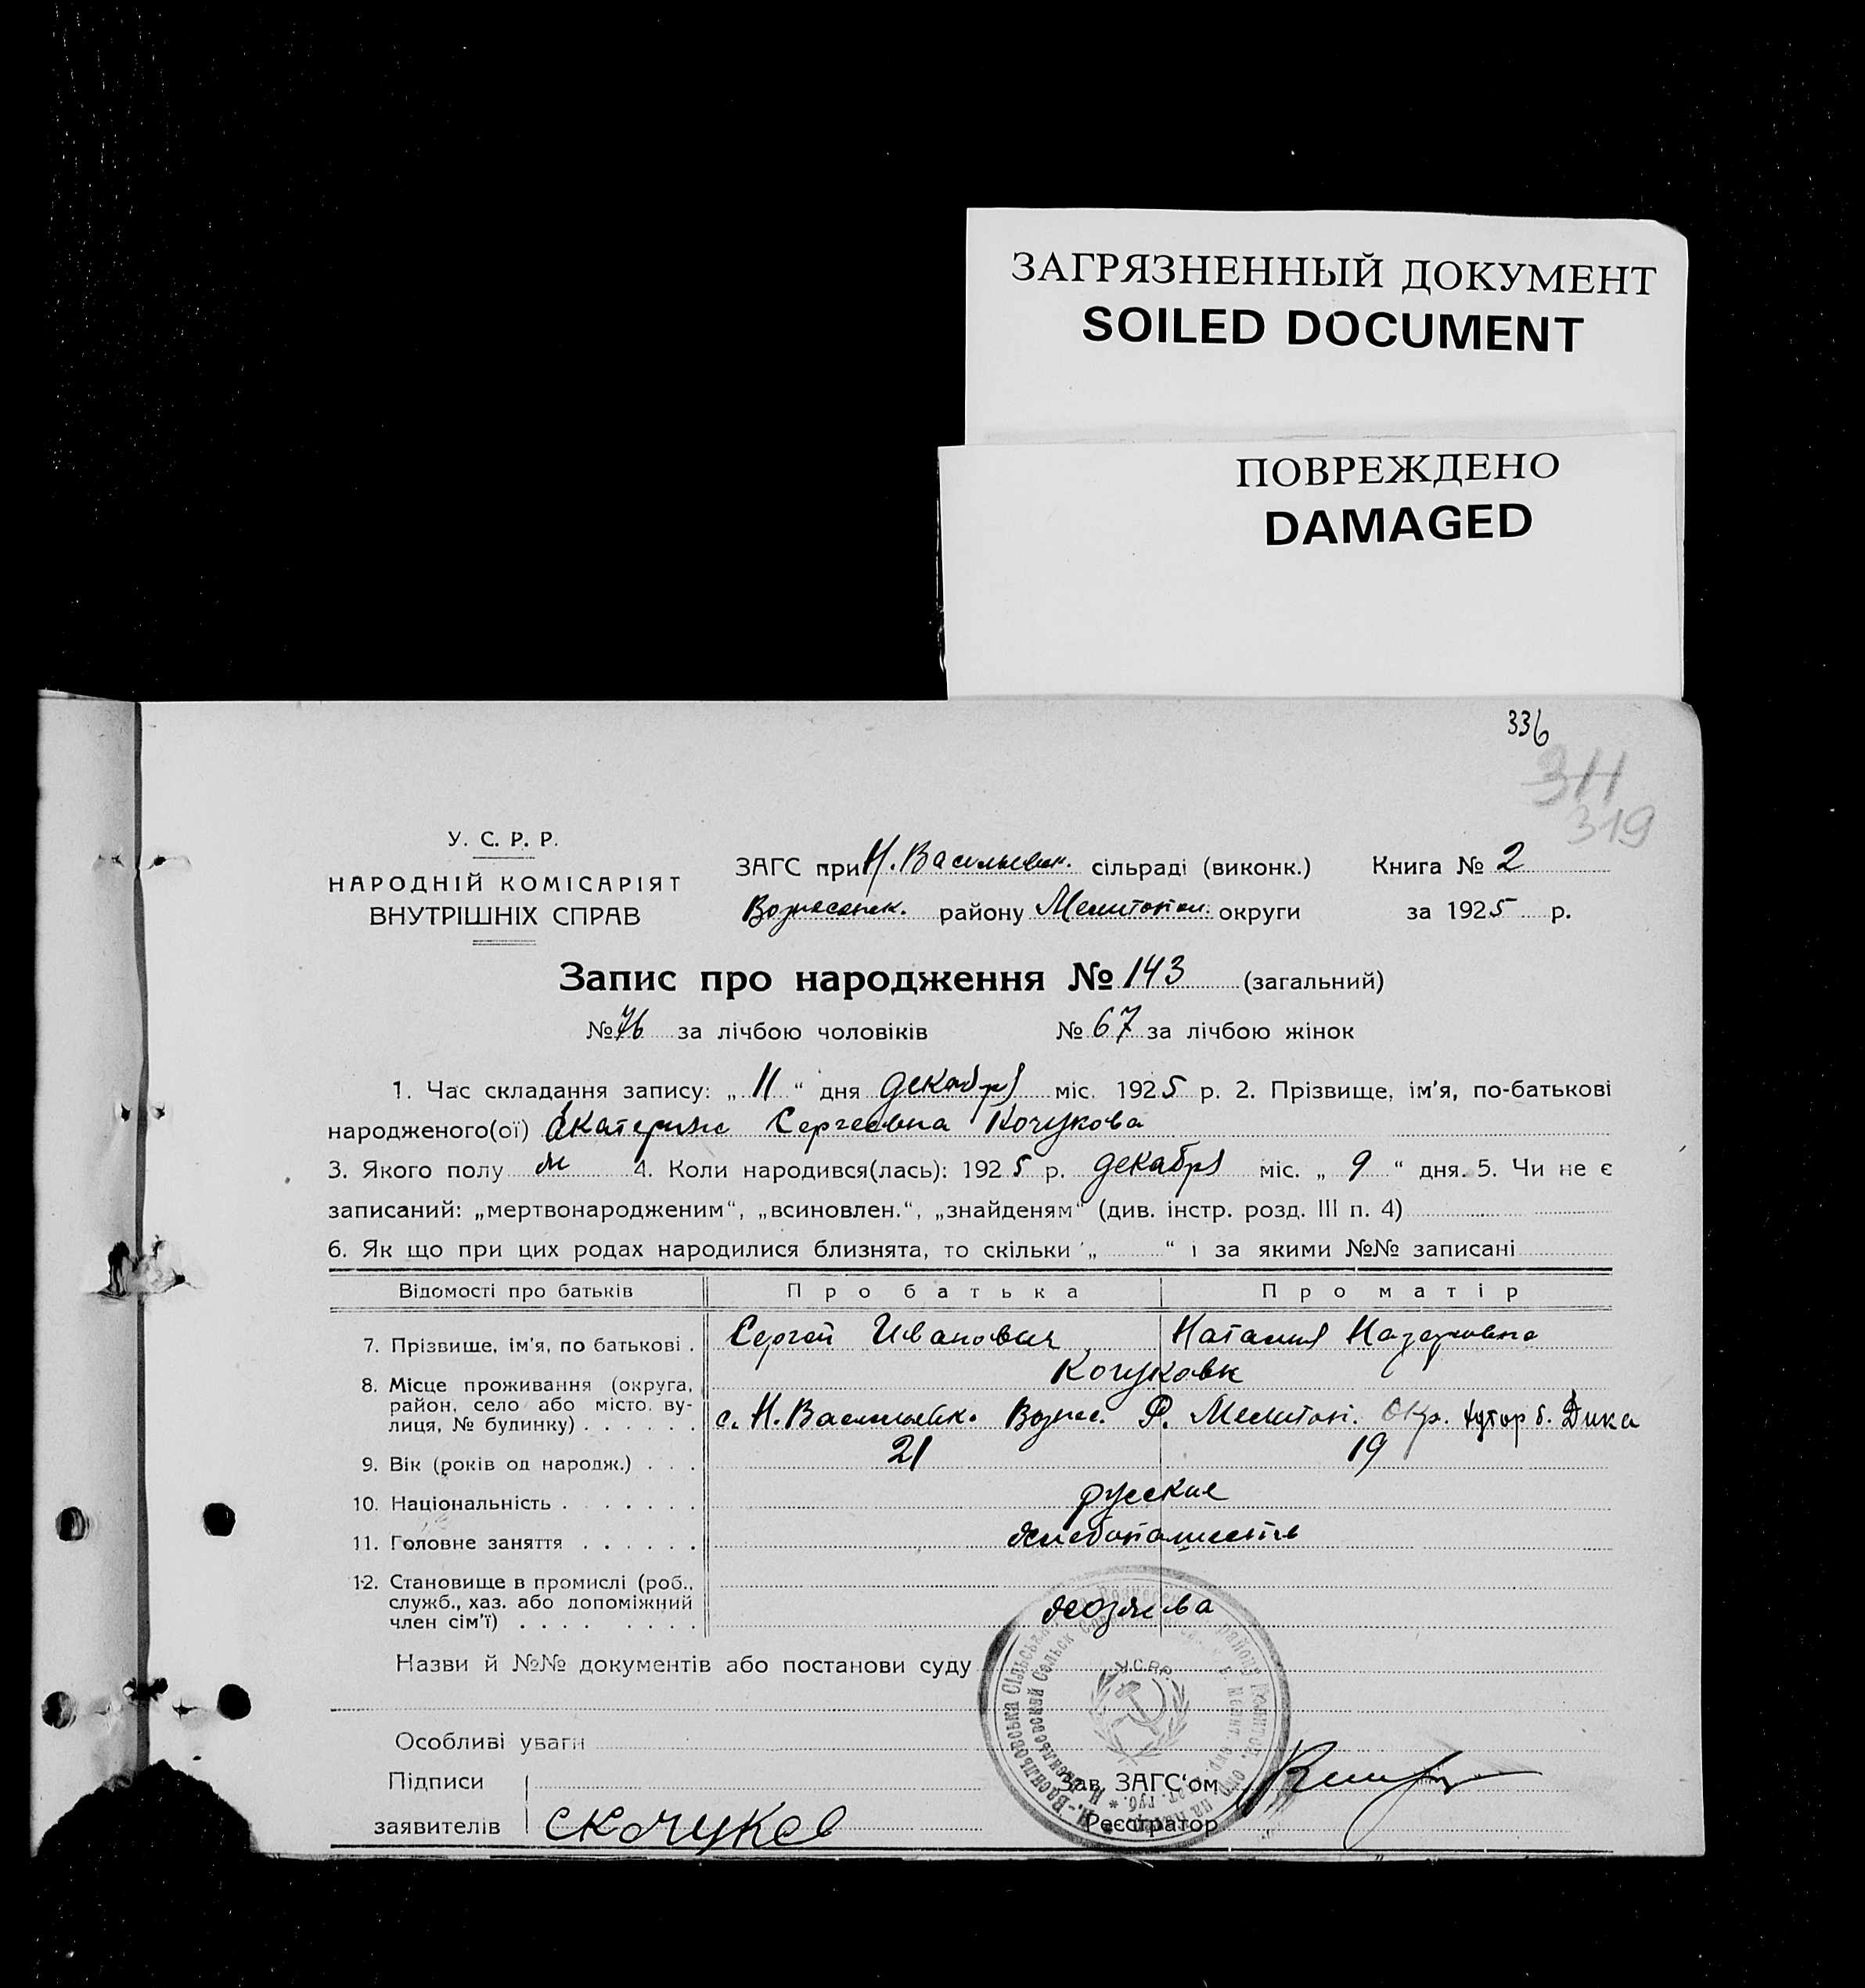 ЗАГРЯЗНЕННЫЙ ДОКУМЕНТ
SOILED DOCUMENT
ПОВРЕЖДЕНО
DAMAGED
336
311
319
У. С. Р. Р.
НАРОДНІЙ КОМІСАРІЯТ
ВНУТРІШНІХ СПРАВ
ЗАГС при Н. Васильевск. сільраді (виконк.) Книга № 2
Вознесенск. району Мелитопол. округи за 1925 р.
Запис про народження № 143 (загальний)
№ 76 за лічбою чоловіків № 67 за лічбою жінок
1. Час складання запису: „ 11 “ дня декабря міс. 1925 р. 2. Прізвище, ім'я, по-батькові
народженого(ої) Екатерина Сергеевна Кочукова
3. Якого полу ж 4. Коли народився(лась): 1925 р. декабря міс. „ 9 “ дня. 5. Чи не є
записаний: „мертвонародженим“, „всиновлен.“, „знайденям“ (див. інстр. розд. III п. 4)
6. Як що при цих родах народилися близнята, то скільки „ “ і за якими №№ записані
Відомості про батьків Про батька Про матір
7. Прізвище, ім'я, по батькові . Сергей Иванович Наталия Назаровна
Кочуковы
8. Місце проживання (округа,
район, село або місто, ву-
лиця, № будинку) . . . . . . с. Н. Васильевк. Возне. Р. Мелитоп. Окр. хутор б. Дика
9. Вік (років од народж.) . . . 21 19
10. Національність . . . . . . . русские
11. Головне заняття . . . . . . хлебопашеств
12. Становище в промислі (роб.,
служб., хаз. або допоміжний
член сім'ї) . . . . . . . . хозяева
Назви й №№ документів або постанови суду
У.С.Р.Р.
Особливі уваги
Підписи
заявителів СКочуков
Зав. ЗАГС'ом
Реєстратор